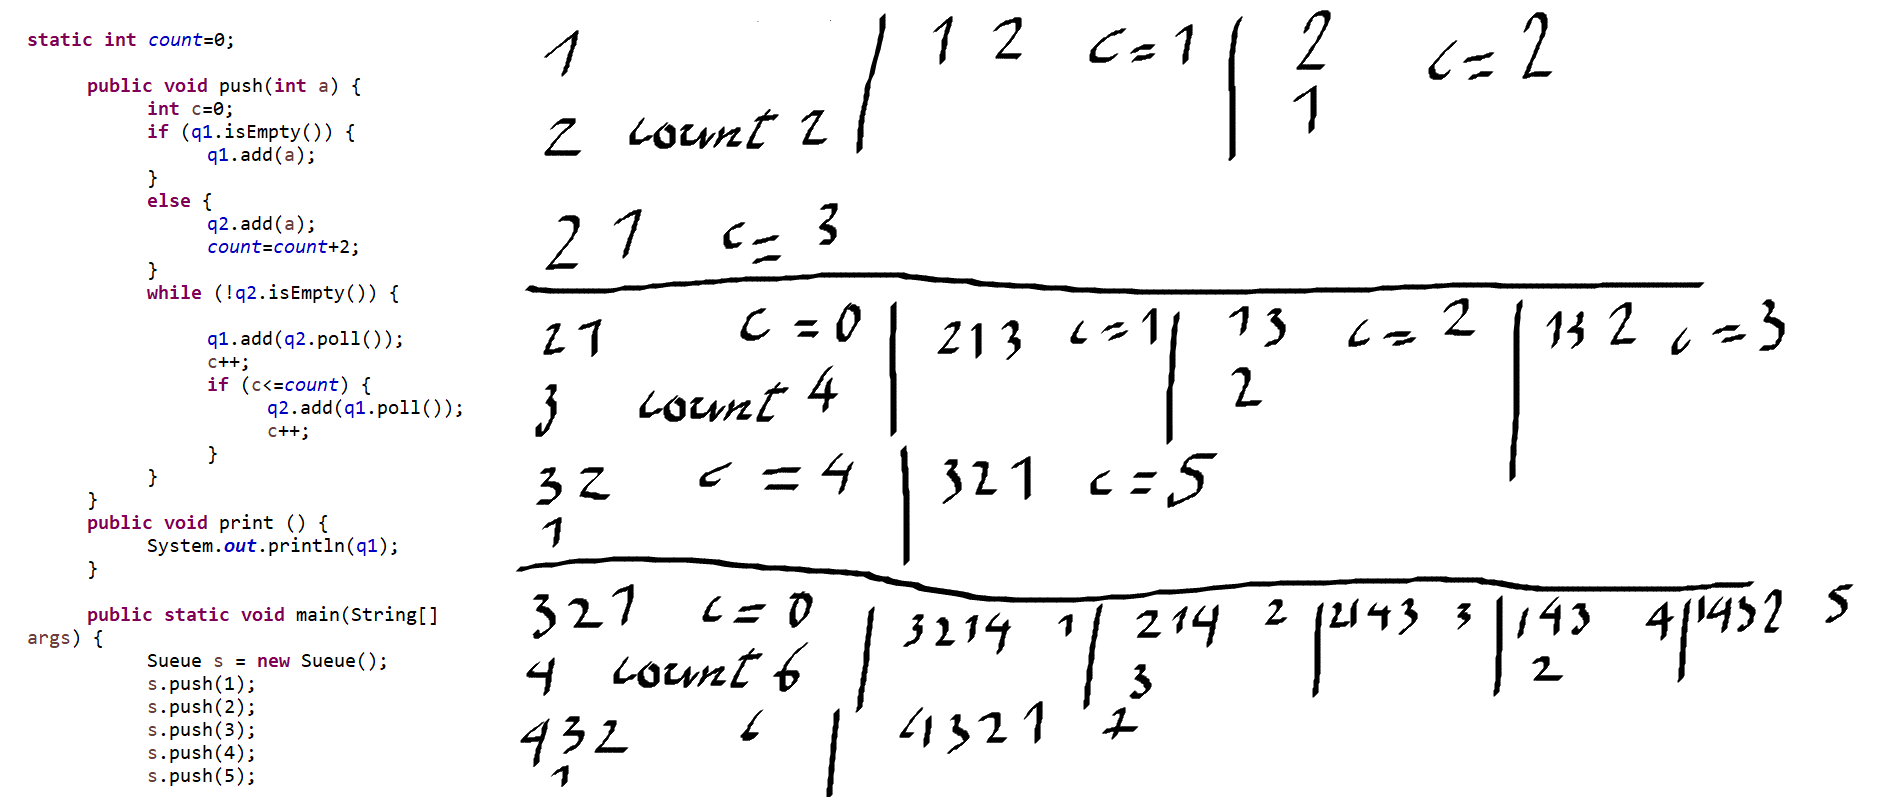 static int count=0;
public void push(int a) {
int c=0;
if (q1.isEmpty()) {
q1.add(a);
}
else {
q2.add(a);
count=count+2;
}
while (!q2.isEmpty()) {
q1.add(q2.poll());
c++;
if (c<=count) {
q2.add(q1.poll());
c++;
}
}
}
public void print () {
System.out.println(q1);
}
public static void main(String[]
args) {
Sueue s = new Sueue();
s.push(1);
s.push(2);
s.push(3);
s.push(4);
s.push(5);
1 | 1 2 c=1 | 2 c=2
2 count 2 | | 1
2 1 c=3
21 c=0 | 213 c=1 | 13 c=2 | 132 c=3
3 count 4 | | 2 |
32 c=4 | 321 c=5
1
321 c=0 | 3214 1 | 214 2 | 2143 3 | 143 4 | 1432 5
4 count 6 | | 3 | | 2 |
432 6 | 4321 7
1